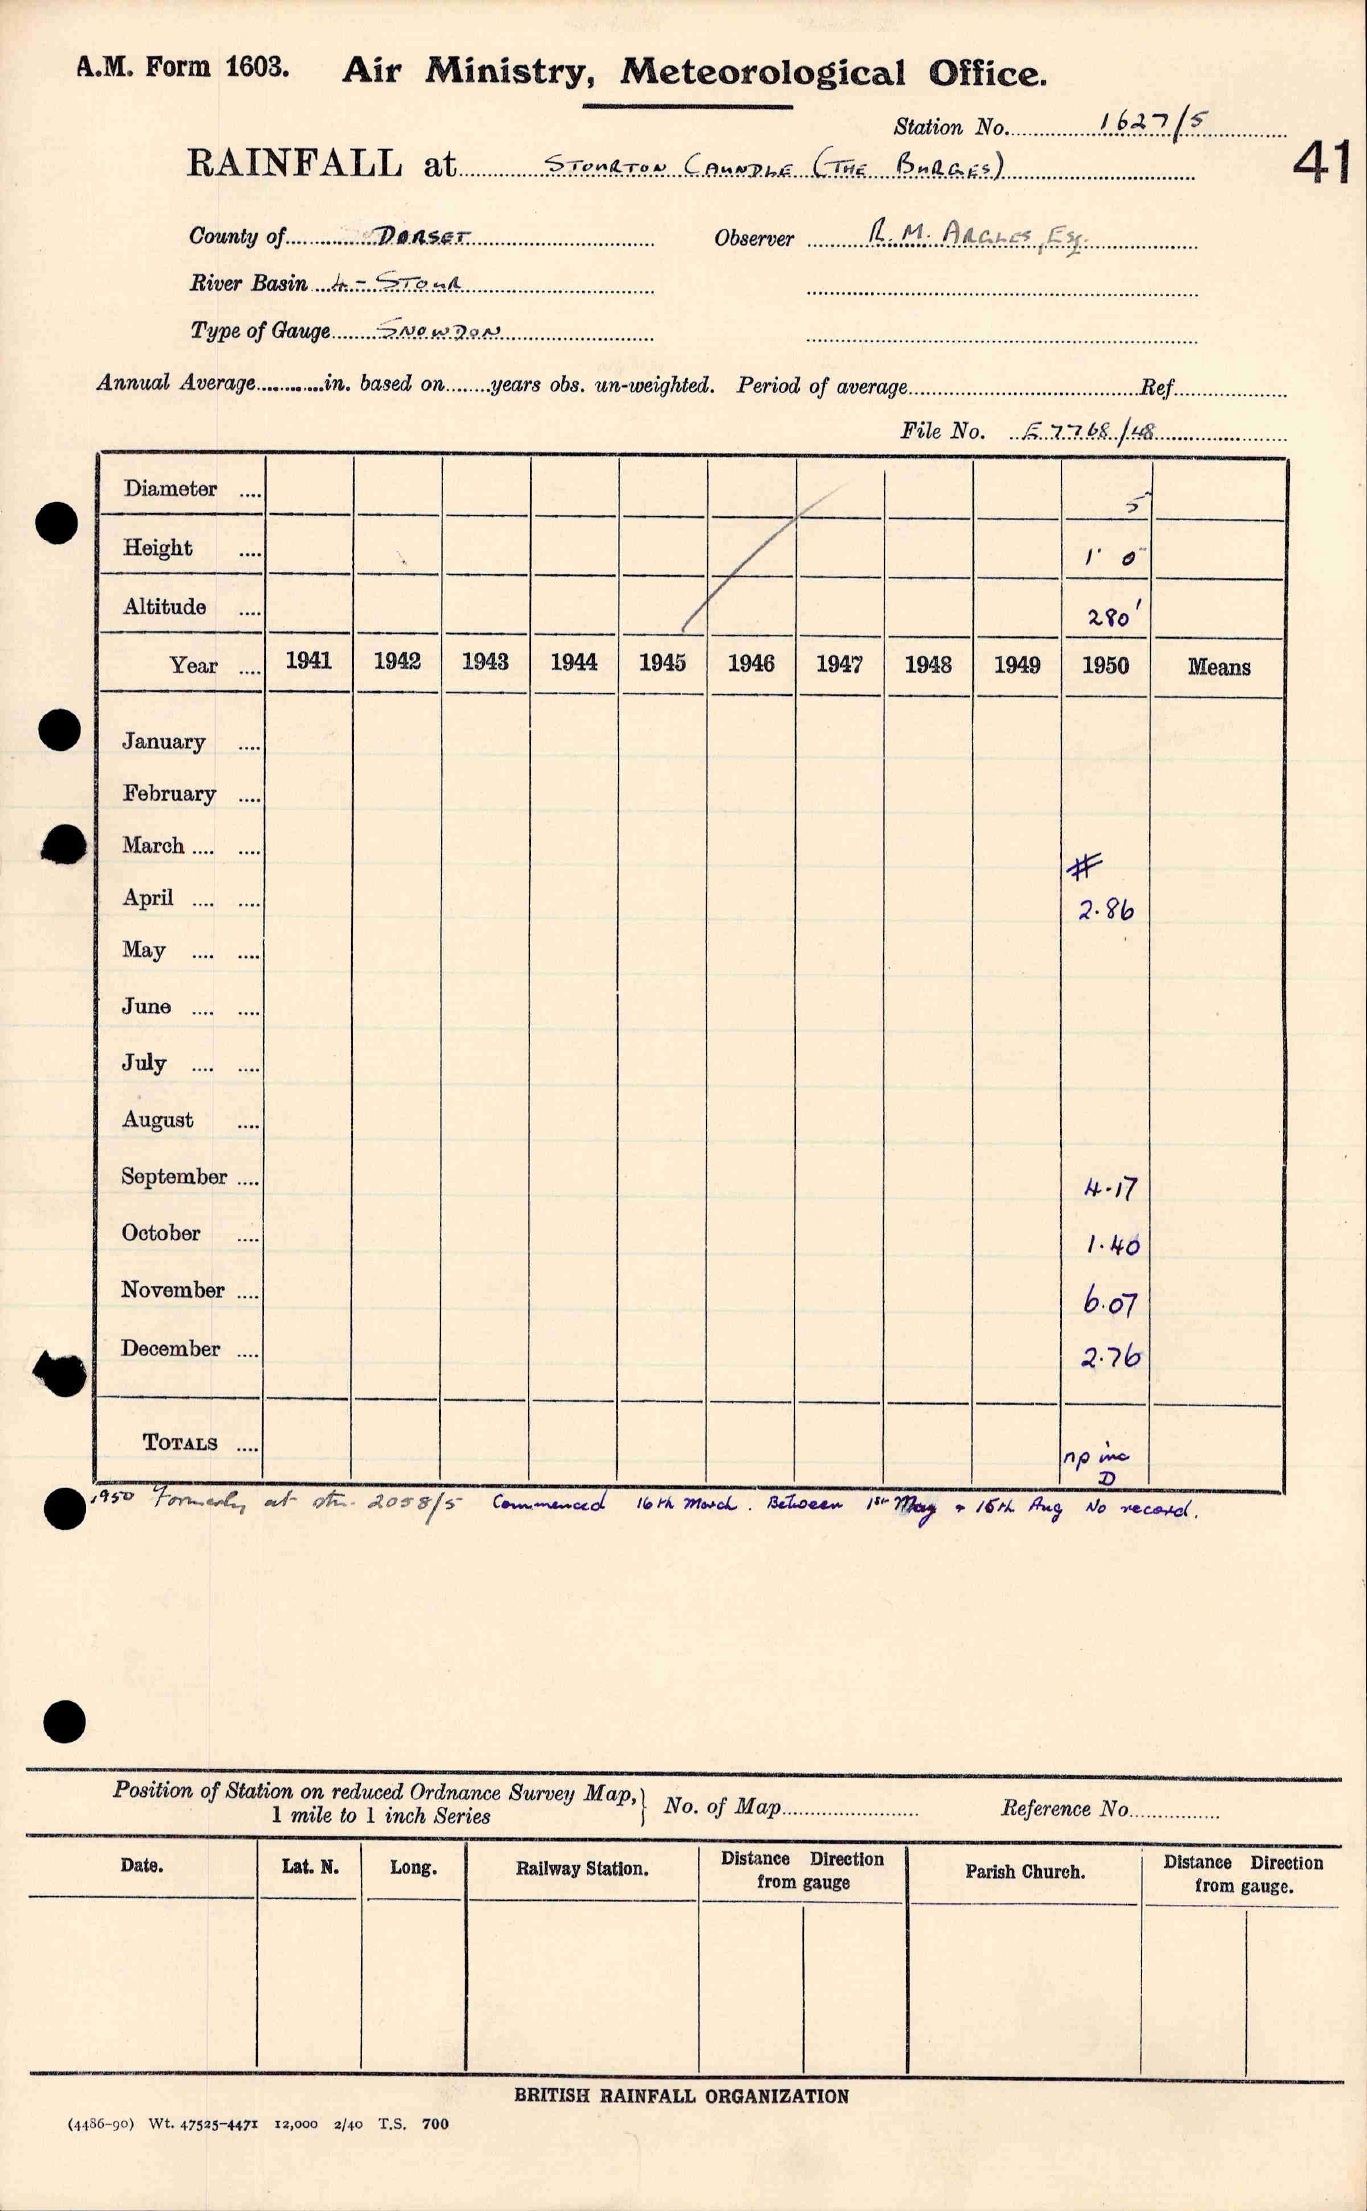 A.M. Form 1603. Air Ministry, Meteorological Office.
Station No. 1627/5
41
RAINFALL at STOURTON CAUNDLE (THE BURGES)
County of DORSET Observer R. M. ARGLES, Esq.
River Basin 4 - STOUR
Type of Gauge SNOWDON
Annual Average in. based on years obs. un-weighted. Period of average Ref.
File No. E7768/48
Diameter 5
Height 1' 0
Altitude 280'
Year 1941 1942 1943 1944 1945 1946 1947 1948 1949 1950 Means
January
February
March #
April 2.86
May
June
July
August
September 4.17
October 1.40
November 6.07
December 2.76
TOTALS np inc
D
1950 Formerly at stn. 2058/5 Commenced 16th March. Between 1st May & 15th Aug No record.
Position of Station on reduced Ordnance Survey Map,} No. of Map Reference No.
1 mile to 1 inch Series
Date. Lat. N. Long. Railway Station. Distance Direction from gauge Parish Church. Distance Direction from gauge.
BRITISH RAINFALL ORGANIZATION
(4486-90) Wt. 47525-4471 12,000 2/40 T.S. 700